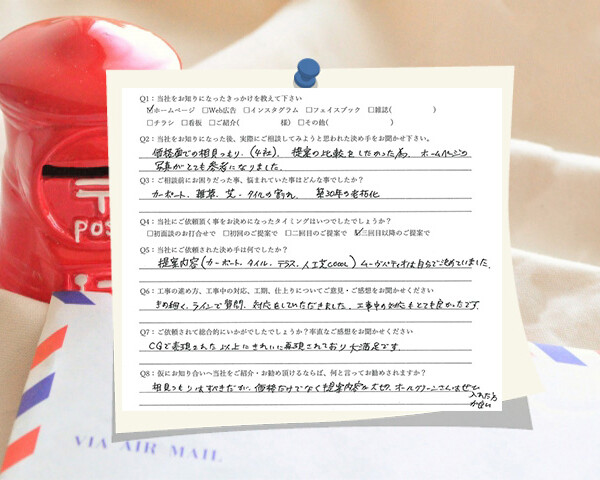 Q1：当社をお知りになったきっかけを教えて下さい
☑ホームページ □Web広告 □インスタグラム □フェイスブック □雑誌( )
□チラシ □看板 □ご紹介( 様) □その他( )
Q2：当社をお知りになった後、実際にご相談してみようと思われた決め手をお聞かせ下さい。
価格面での相見つもり、(4社)、提案の比較をしたかった為、ホームページの
写真がとても参考になりました。
Q3：ご相談前にお困りだった事、悩まれていた事はどんな事でしたか？
カーポート、雑草、芝・タイルの割れ、築30年の老朽化
Q4：当社にご依頼頂く事をお決めになったタイミングはいつでしたでしょうか？
□初面談のお打合せで □初回のご提案で □二回目のご提案で ☑三回目以降のご提案で
Q5：当社にご依頼された決め手は何でしたか？
提案内容(カーポート、タイル、テラス、人工芝COOOL) ムーヴパティオは自分で決めていました。
Q6：工事の進め方、工事中の対応、工期、仕上りについてご意見・ご感想をお聞かせください
きめ細く、ラインで質問、対応をしていただきました、工事中の対応もとても良かったです.
Q7：ご依頼されて総合的にいかがでしたでしょうか？率直なご感想をお聞かせください
CGで表現された以上にきれいに再現されており大満足です.
Q8：仮にお知り合いへ当社をご紹介・お勧め頂けるならば、何と言ってお勧めされますか？
相見つもりはすべきだが、価格だけでなく提案内容が大切、ホームグリーンさんはぜひ
入れた方
が良い
POS
VIA AIR MAIL